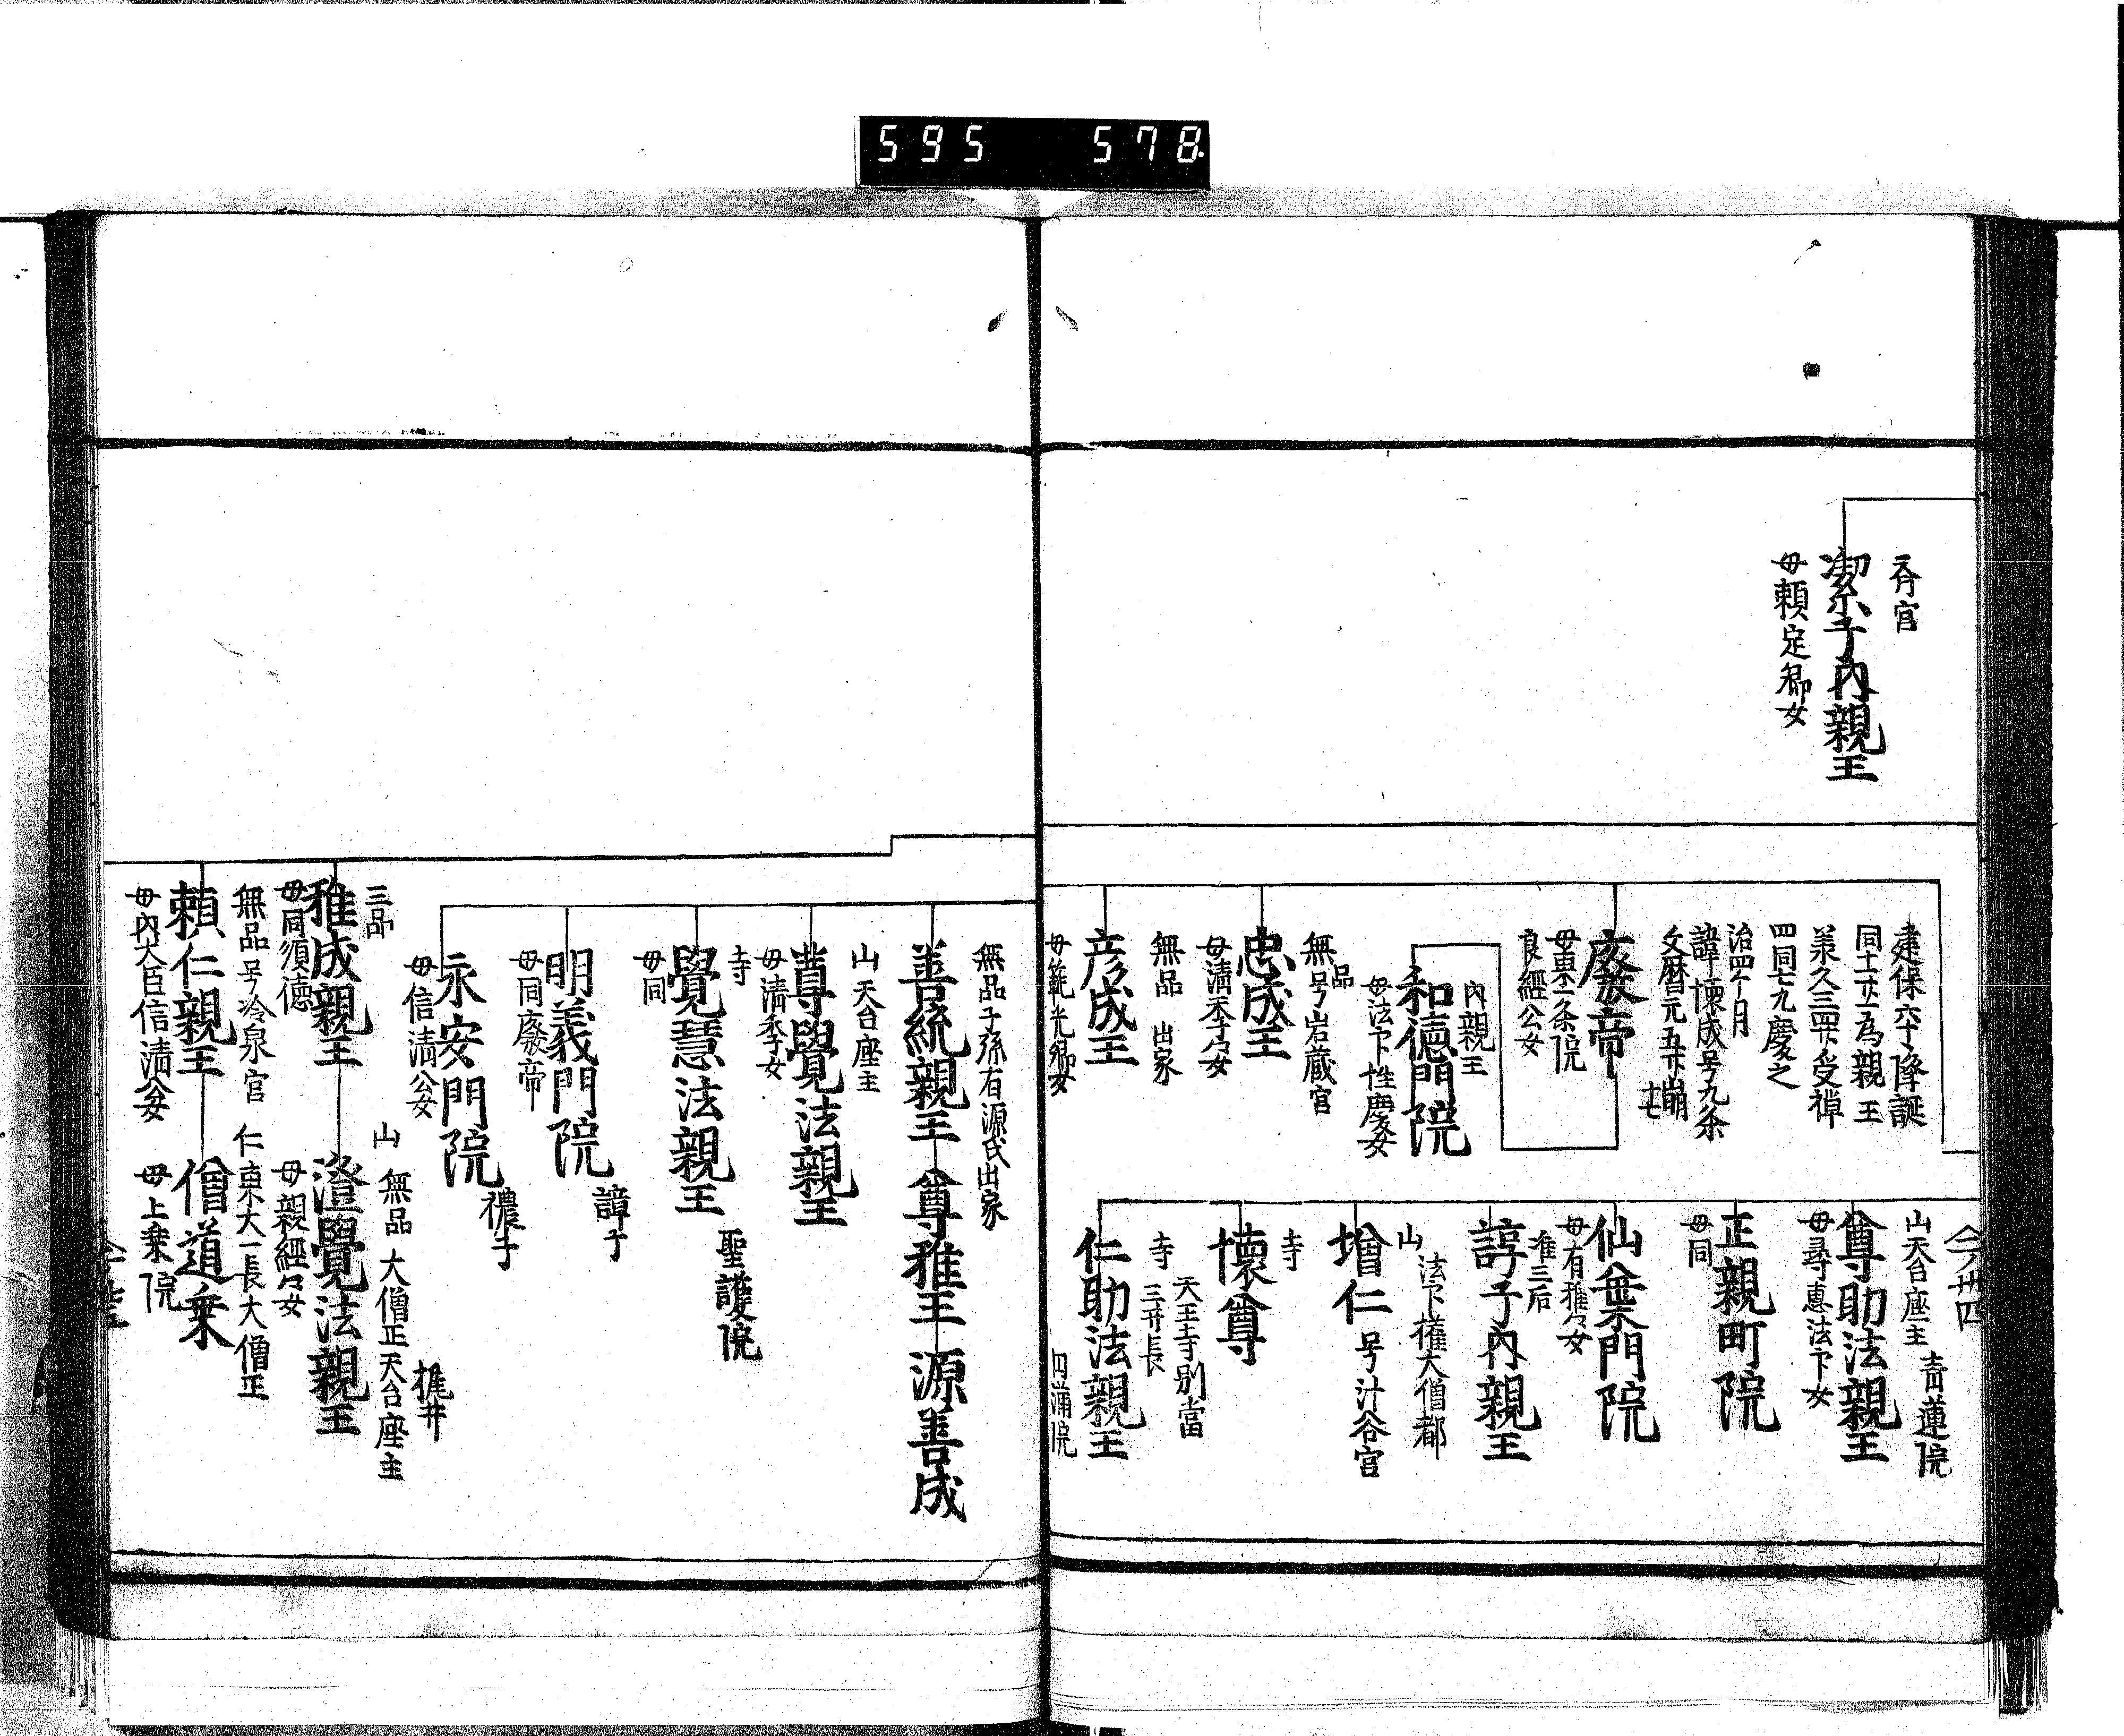 595 578
斉宮
潔子内親王
母頼定卿女
建保六十降誕
同十一廿一為親王
承久三四廿受禅
四同七九廃之
治四个月
諱懐成号九条
文暦元五廿崩
十七
廃帝
母東一条院
良経公女
内親王
和徳門院
母法下性慶女
無品
号岩蔵宮
忠成王
母清季女
無品 出家
彦成王
母範光卿女
今卅四
山天台座主 青蓮院
尊助法親王
母尋恵法下女
正親町院
母同
仙華門院
母有雅女
准三后
諄子内親王
山 法下権大僧都
増仁 号汁谷宮
寺
懐尊
天王寺別當
寺 三井長
仁助法親王
円満院
無品子孫有源氏出家
善統親王 尊雅王 源善成
山 天台座主
尊覺法親王
母清季女
寺
覺慧法親王 聖護院
母同
明義門院 諱子
母同廃帝
永安門院 穠子
母信清公女
三品
雅成親王
母同順徳
山 無品 大僧正天台座主
梶井
澄覺法親王
母親経女
無品号冷泉宮
頼仁親王
母内大臣信清公女
仁東大一長大僧正
僧道乗
母上乗院